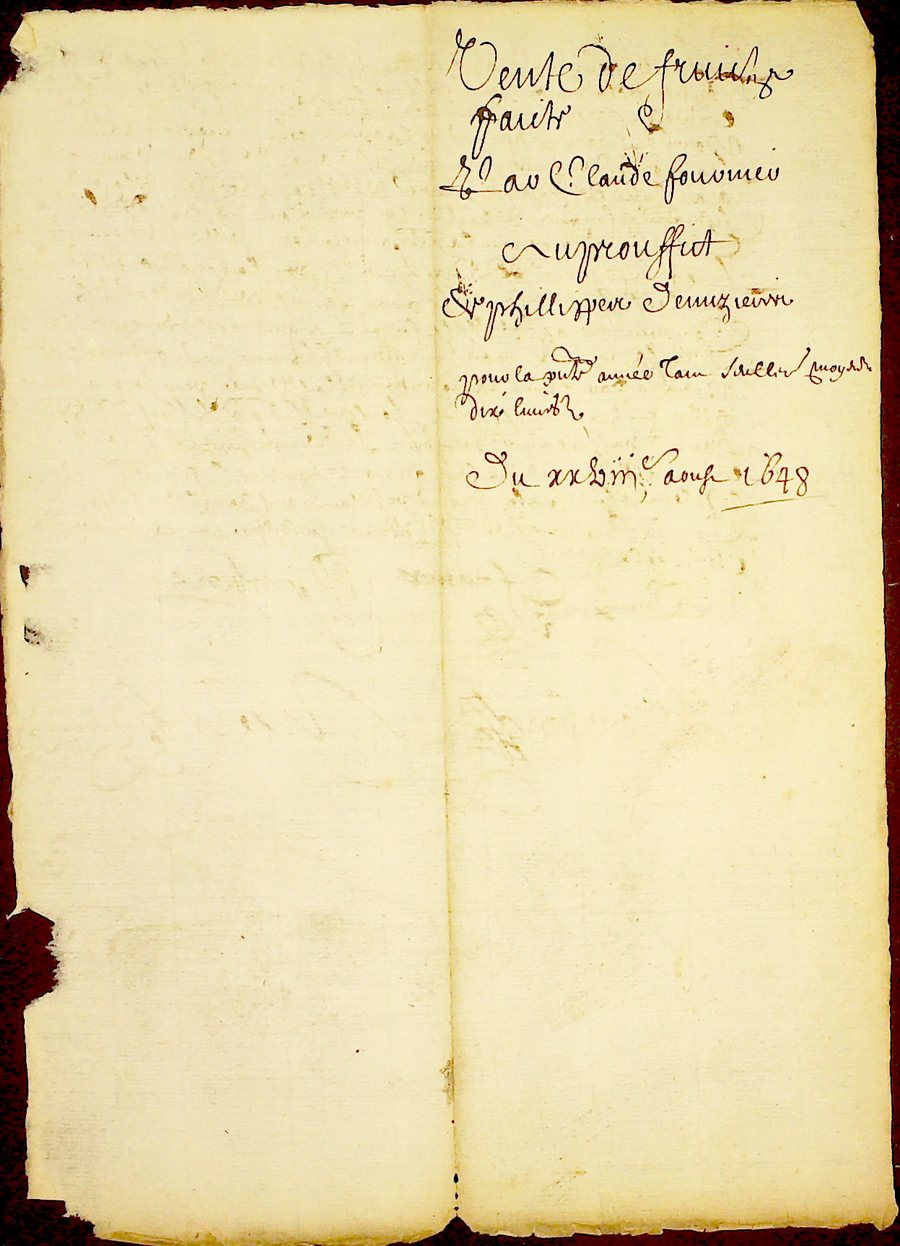 Vente de fruictz
faicte
par Claude fournier
Au prouffict
de phillippes
pour la pnte année tant seullemt moyenn
dix livres
Du xxviiie aoust 1648